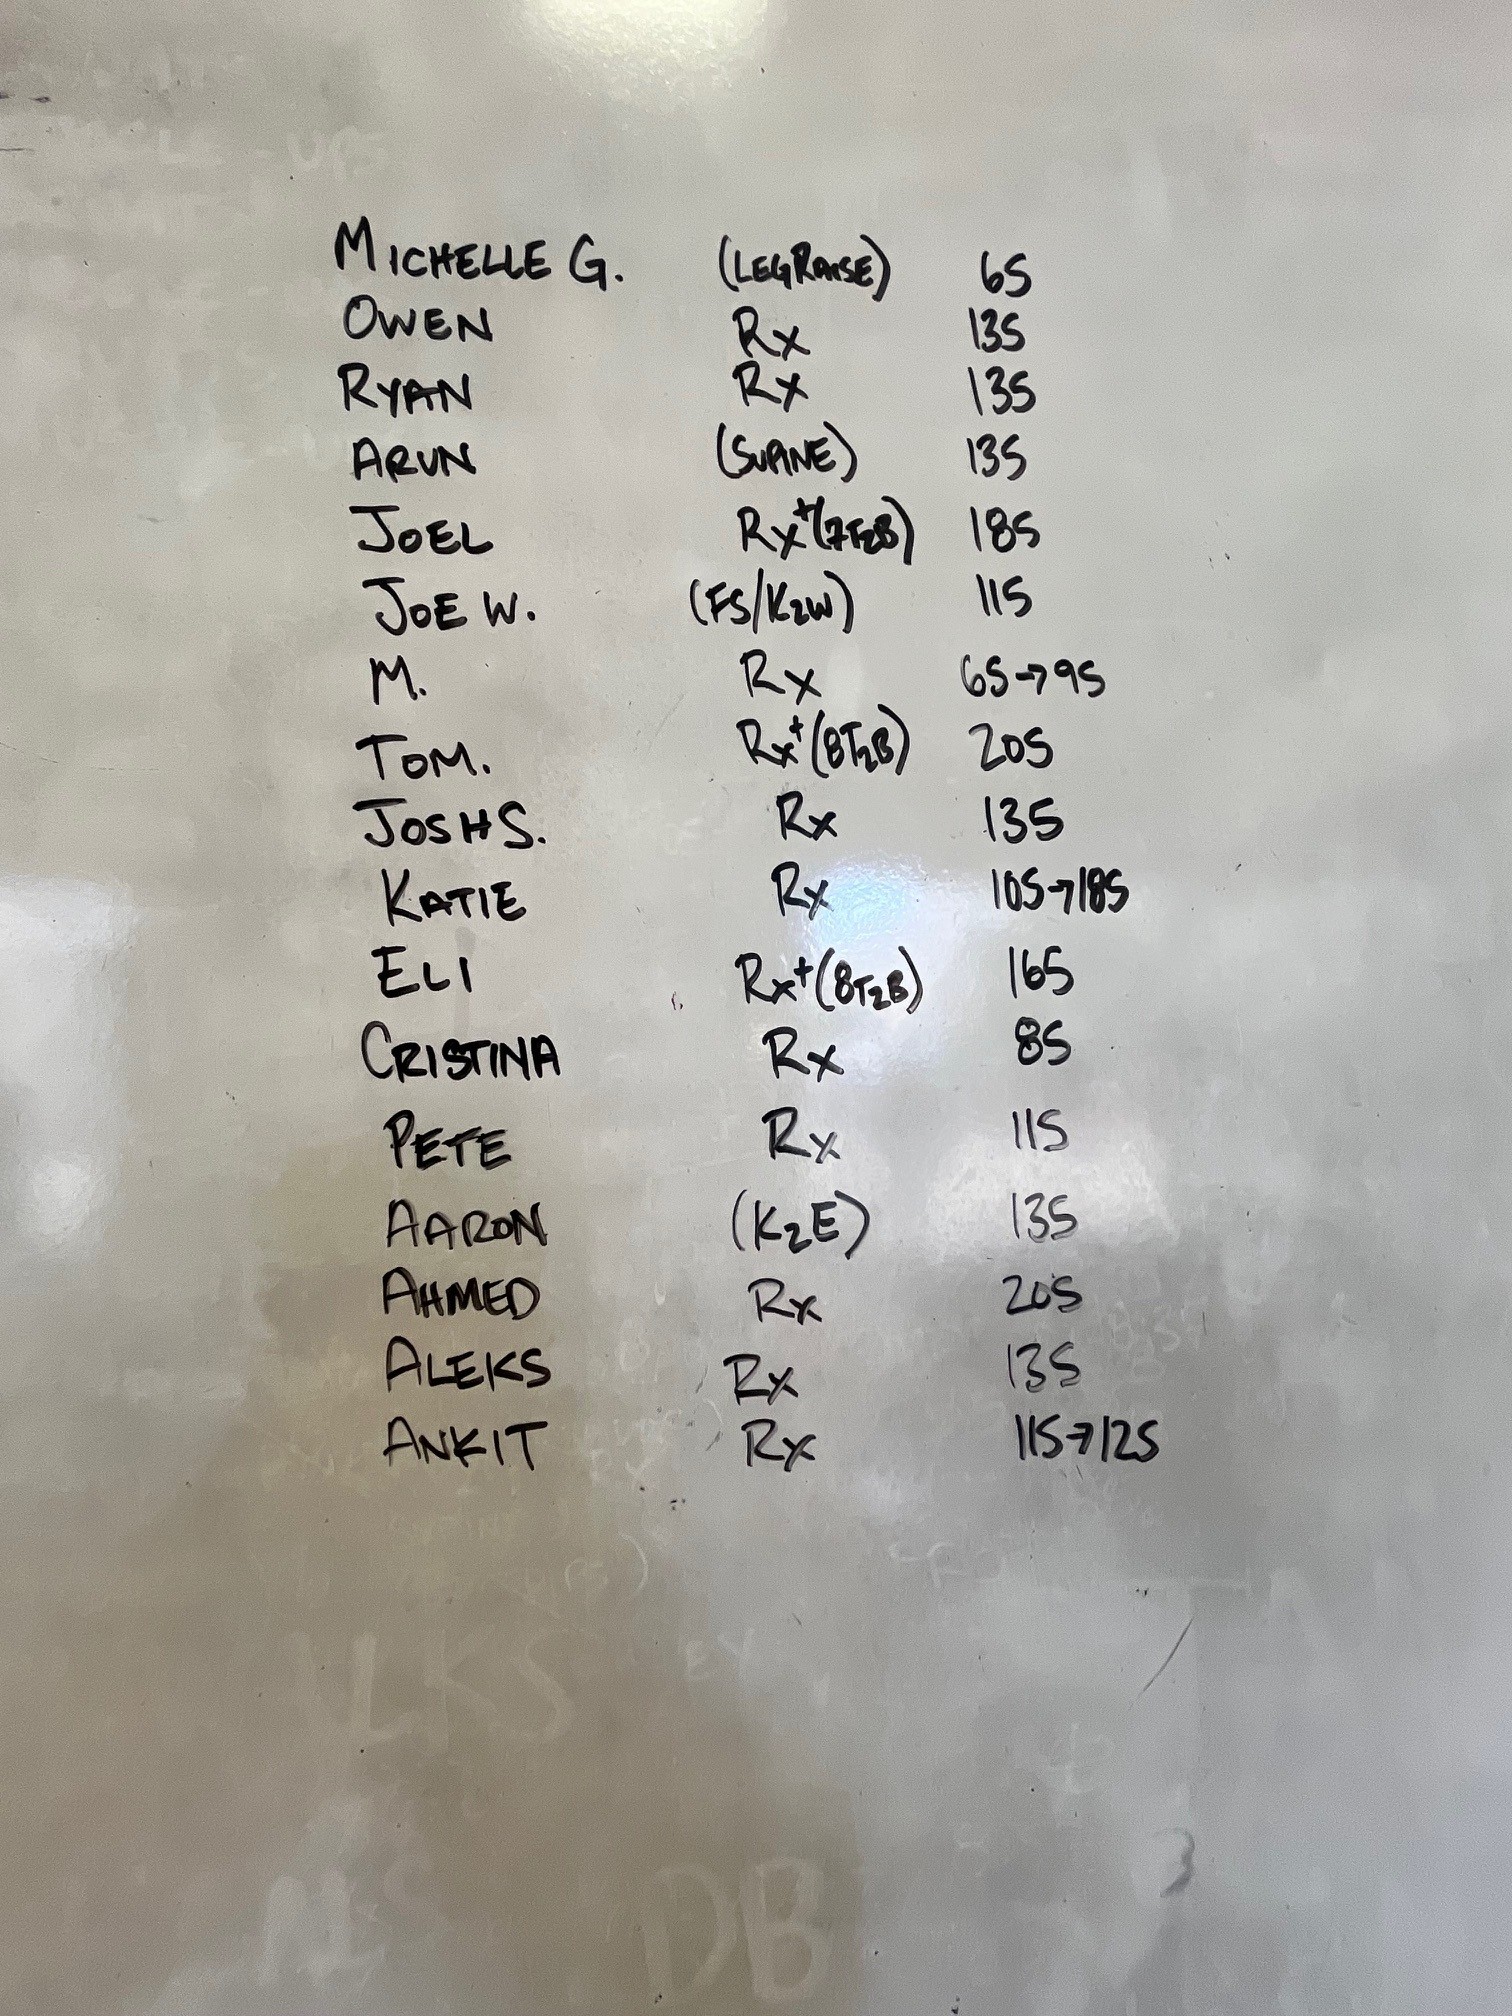 MICHELLE G. (LEGRAISE) 65
OWEN Rx 135
RYAN Rx 135
ARUN (SUPINE) 135
JOEL Rx+(7T2B) 185
JOE W. (FS/K2W) 115
M. Rx 65→95
TOM. Rx+(8T2B) 205
JOSH S. Rx 135
KATIE Rx 105→185
ELI Rx+(8T2B) 165
CRISTINA Rx 85
PETE Rx 115
AARON (K2E) 135
AHMED Rx 205
ALEKS Rx 135
ANKIT Rx 115→125
DB